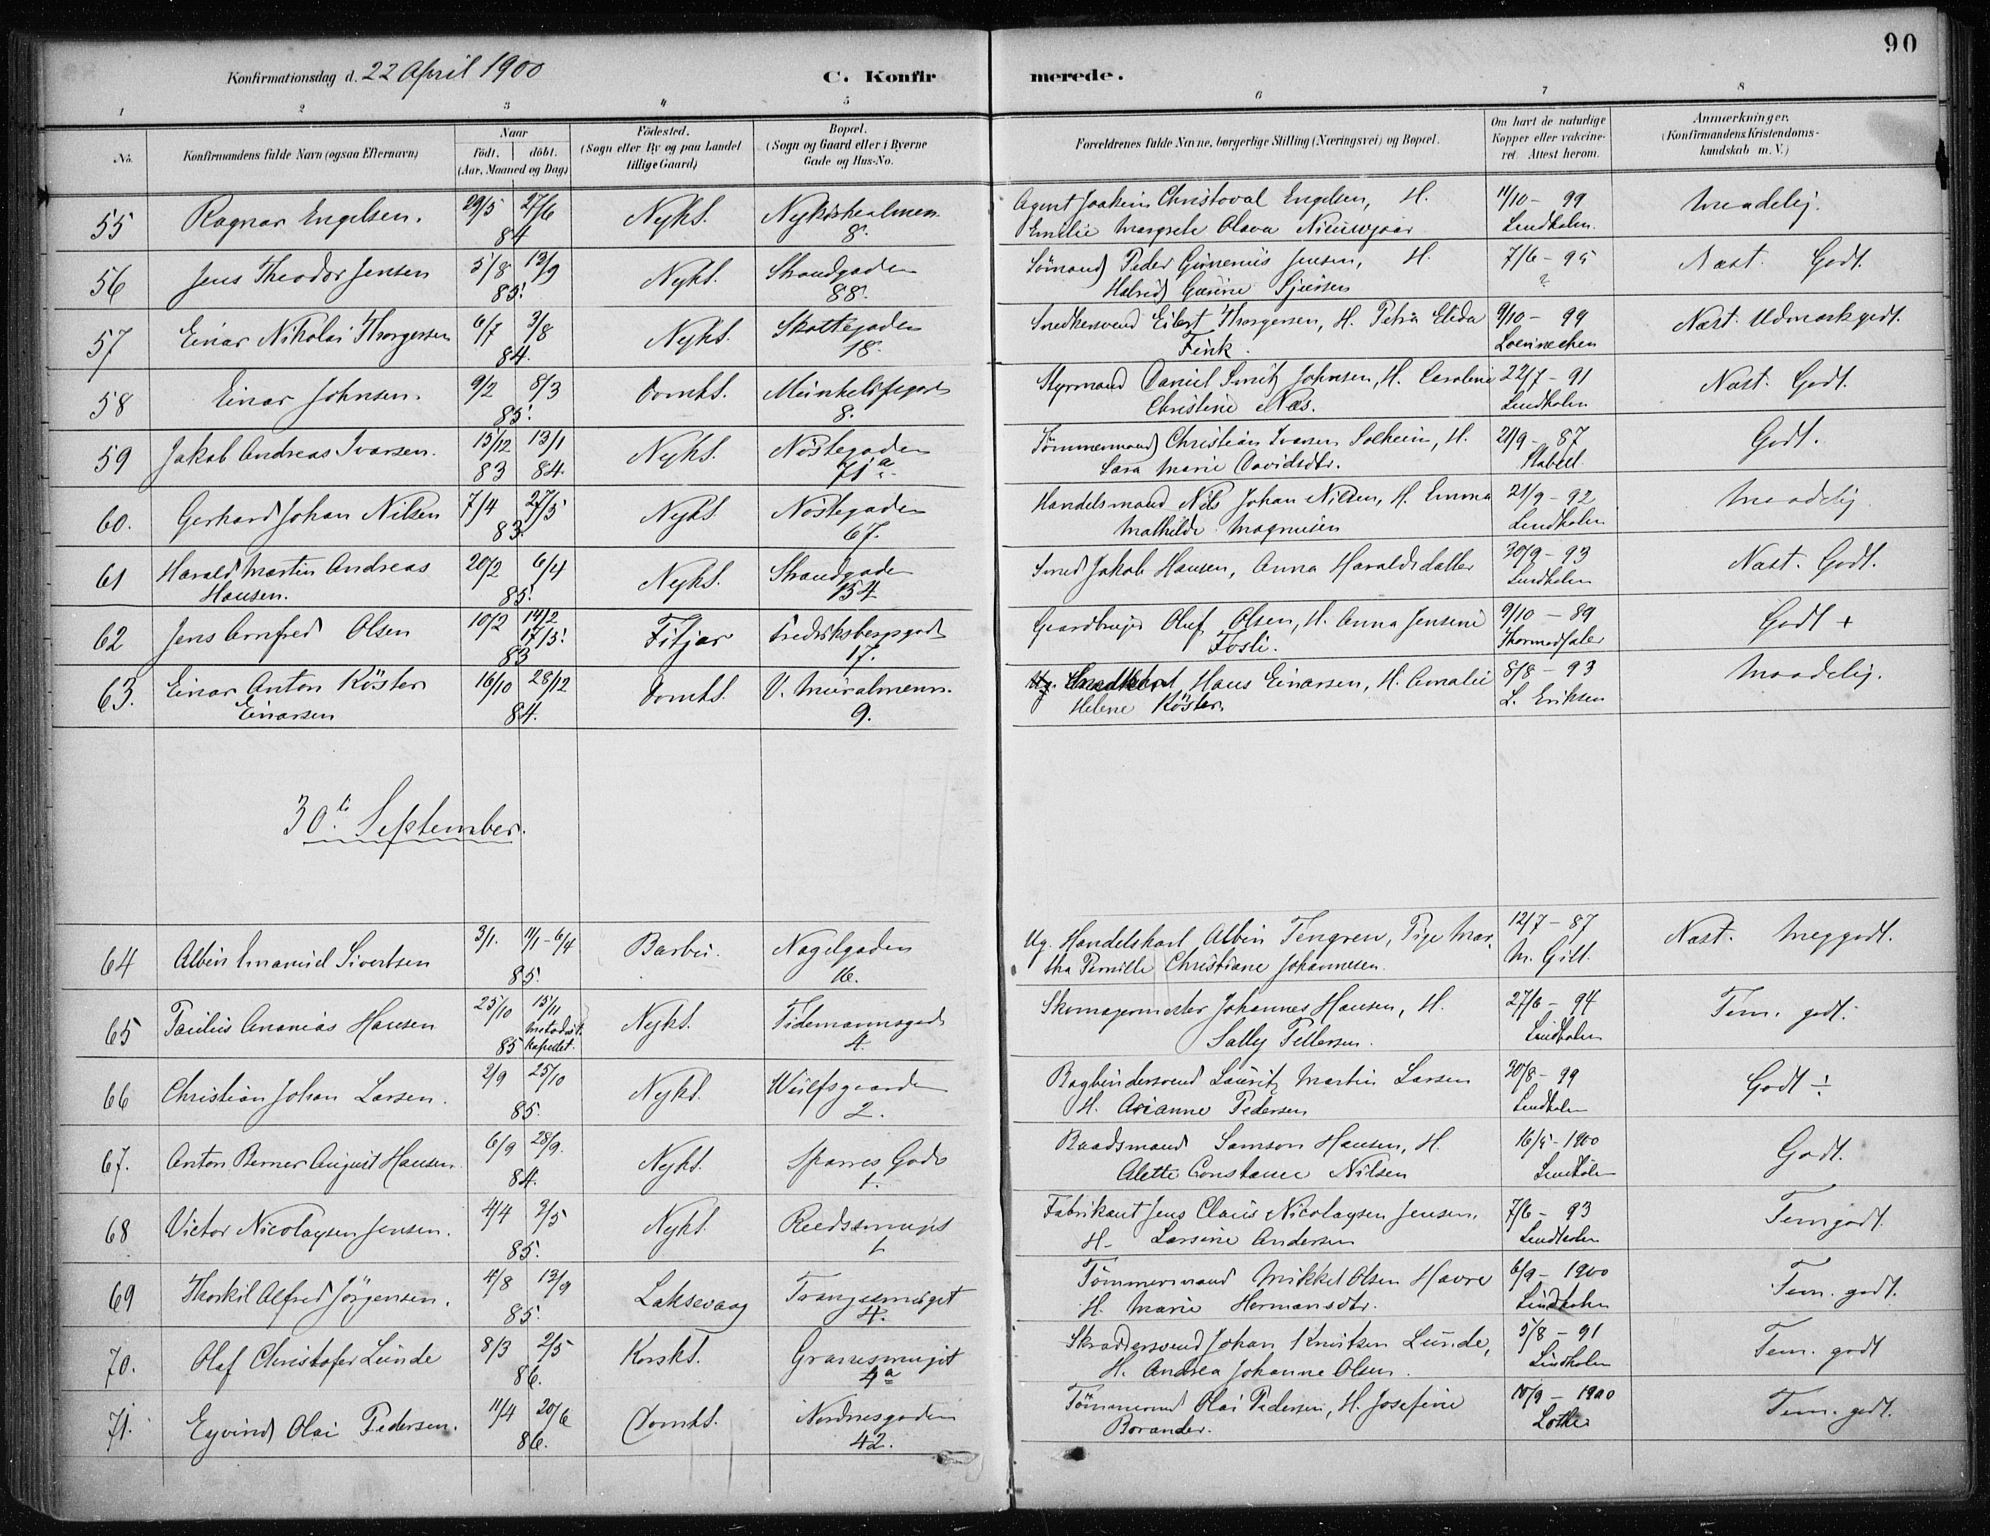 90
Konfirmationsdag d. 22 April 1900
C. Konfirmerede.
1 2 3 4 5 6 7 8
No.
Konfirmandens fulde Navn (ogsaa Efternavn)
Naar
Født. døbt.
(Aar, Maaned og Dag)
Fødested.
(Sogn eller By og paa Landet
tillige Gaard)
Bopæl.
(Sogn og Gaard eller i Byerne
Gade og Hus-No.
Forældrenes fulde Navne, borgerlige Stilling (Næringsvei) og Bopæl.
Om havt de naturlige
Kopper eller vakcine-
ret Attest herom.
Anmærkninger.
(Konfirmandens Kristendoms-
kundskab m. V.)
55 Ragnar Engelsen. 29/5 27/6 84 Nykt. 8. Agent Joakim Christoval Engelsen, H. 11/10 - 99 Maadelig.
Emilie Margrete Olava Lindholm.
56 Jens Theodor Jensen 5/8 13/9 85. Nykt. Strandgaden 88. Sømand Peder Jensen, H. 7/6 - 95 Næst. Godt.
?
57 Einar Nikolai Thorgersen 6/7 3/8 84. Nykt. Skottegaden 18. Snedkersvend Eilert Thorgersen, H. Petra Elida 9/10 - 99 Næst. Udmærkgodt.
Fink. Loennechen
58 Einar Johnsen. 9/2 8/3 85. Domkt. 8. Styrmand Daniel Smitz Johnsen, H. Caroline 22/7 - 91 Næst. Godt.
Christine Næs. Lindholm
59 Jakob Andreas Ivarsen. 15/12 83 13/1 84. Nykt. Nøstegaden 71a Tømmermand Christian Ivarsen Solheim, H. 21/9 - 87 Godt.
Sara Marie Davidsdtr. Stabell
60. Gerhard Johan Nilsen 7/4 27/5 83. Nykt. Nøstegaden 67. Handelsmand Nils Johan Nilsen, H. Emma 21/9 - 92 Maadelig
Mathilde Magnusen Lindholm
61 Harald Martin Andreas Hansen. 20/2 6/4 85. Nykt. Strandgaden 154. Smed Jakob Hansen, Anna Haraldsdatter 30/9 - 93 Næst. Godt.
Lindholm
62 Jens Arnfred Olsen 10/2 14/2 17/5 83 Fitjar Fredriksbergsgade 17. Gaardbruger Oluf Olsen, H. Anna Jensine 9/10 - 89 Godt +
Fosli.
63. Einar Anton Köster Einarsen 16/10 28/12 84. Domkt. V. Muralmenn. 9. Hans Einarsen, H. Amalie 8/8 - 93 Maadelig.
Helene Köster L. Eriksen
30te September.
64 Albin Emanuel Sivertsen 3/1. 11/1 - 6/4 85. Barbu. Nagelgaden 16. Ug. Handelskarl Albin Tengren, Pige Mar- 12/7 - 87 Næst. Meggodt.
tha Pernille Christiane Johannesen. M. Gill.
65 Paulus Ananias Hansen 25/10 15/11 85 Metodist kapellet. Nykt. Tidemannsgade 4. Skomagermester Johannes Hansen, H. 27/6 - 94 Tem. godt.
Sally Pettersen. Lindholm
66 Christian Johan Larsen. 2/9 25/10 85. Nykt. Wulfsgaarden 2. Bogbindersvend Lauritz Martin Larsen 30/8 - 99 Godt ÷
H. Arianne Pedersen Lindholm
67. Anton Berner August Hansen 6/9 28/9. 84. Nykt. Sparres Gade 1. Baadsmand Samson Hansen, H. 16/5 - 1900 Godt.
Alette Constanse Nilsen Lindholm
68 Victor Nicolaysen Jensen. 4/4 2/5 85. Nykt Reedssmuget 1 Fabrikant Jens Claus Nicolaysen Jensen. 7/6 - 93 Temgodt.
H. Larsine Andersen Lindholm
69 Thorkil Alfred Jörgensen. 4/8 13/9 85. Laksevaag Trangesmuget 4. Tømmermand Mikkel Olsen Havre 6/9 - 1900 Tem. godt.
H. Marie Hermansdtr. Lindholm
70. Olaf Christofer Lunde 8/3 2/5 86. Korskt. Granesmuget 4a Skræddersvend Johan Knutsen Lunde, 5/8 - 91 Tem. godt
H. Andrea Johanne Olsen. Lindholm
71. Eyvind Olai Pedersen. 11/4 20/6 86. Domkt. Nordnesgaden 42. Tømmermd Olai Pedersen, H. Josefine 10/9 - 1900 Tem. godt.
Borander. Lothe